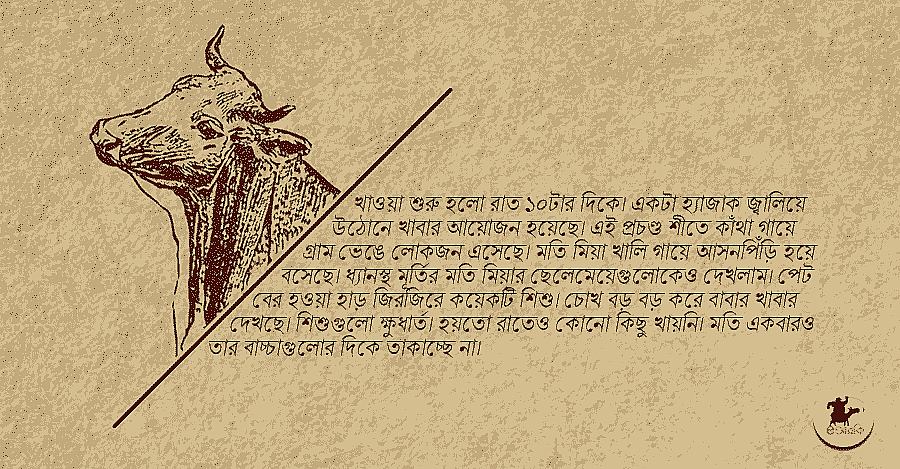 খাওয়া শুরু হলো রাত ১০টার দিকে। একটা হ্যাজাক জ্বালিয়ে
উঠোনে খাবার আয়োজন হয়েছে। এই প্রচণ্ড শীতে কাঁথা গায়ে
গ্রাম ভেঙে লোকজন এসেছে। মতি মিয়া খালি গায়ে আসনপিঁড়ি হয়ে
বসেছে। ধ্যানস্থ মূর্তির মতি মিয়ার ছেলেমেয়েগুলোকেও দেখলাম। পেট
বের হওয়া হাড় জিরজিরে কয়েকটি শিশু। চোখ বড় বড় করে বাবার খাবার
দেখছে। শিশুগুলো ক্ষুধার্ত। হয়তো রাতেও কোনো কিছু খায়নি। মতি একবারও
তার বাচ্চাগুলোর দিকে তাকাচ্ছে না।
eআরকি